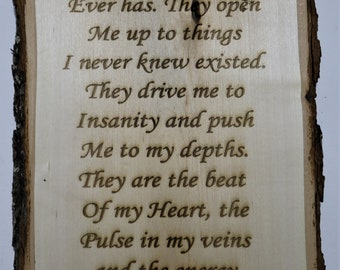 Ever has. They open
Me up to things
I never knew existed.
They drive me to
Insanity and push
Me to my depths.
They are the beat
Of my Heart, the
Pulse in my veins
and the energy